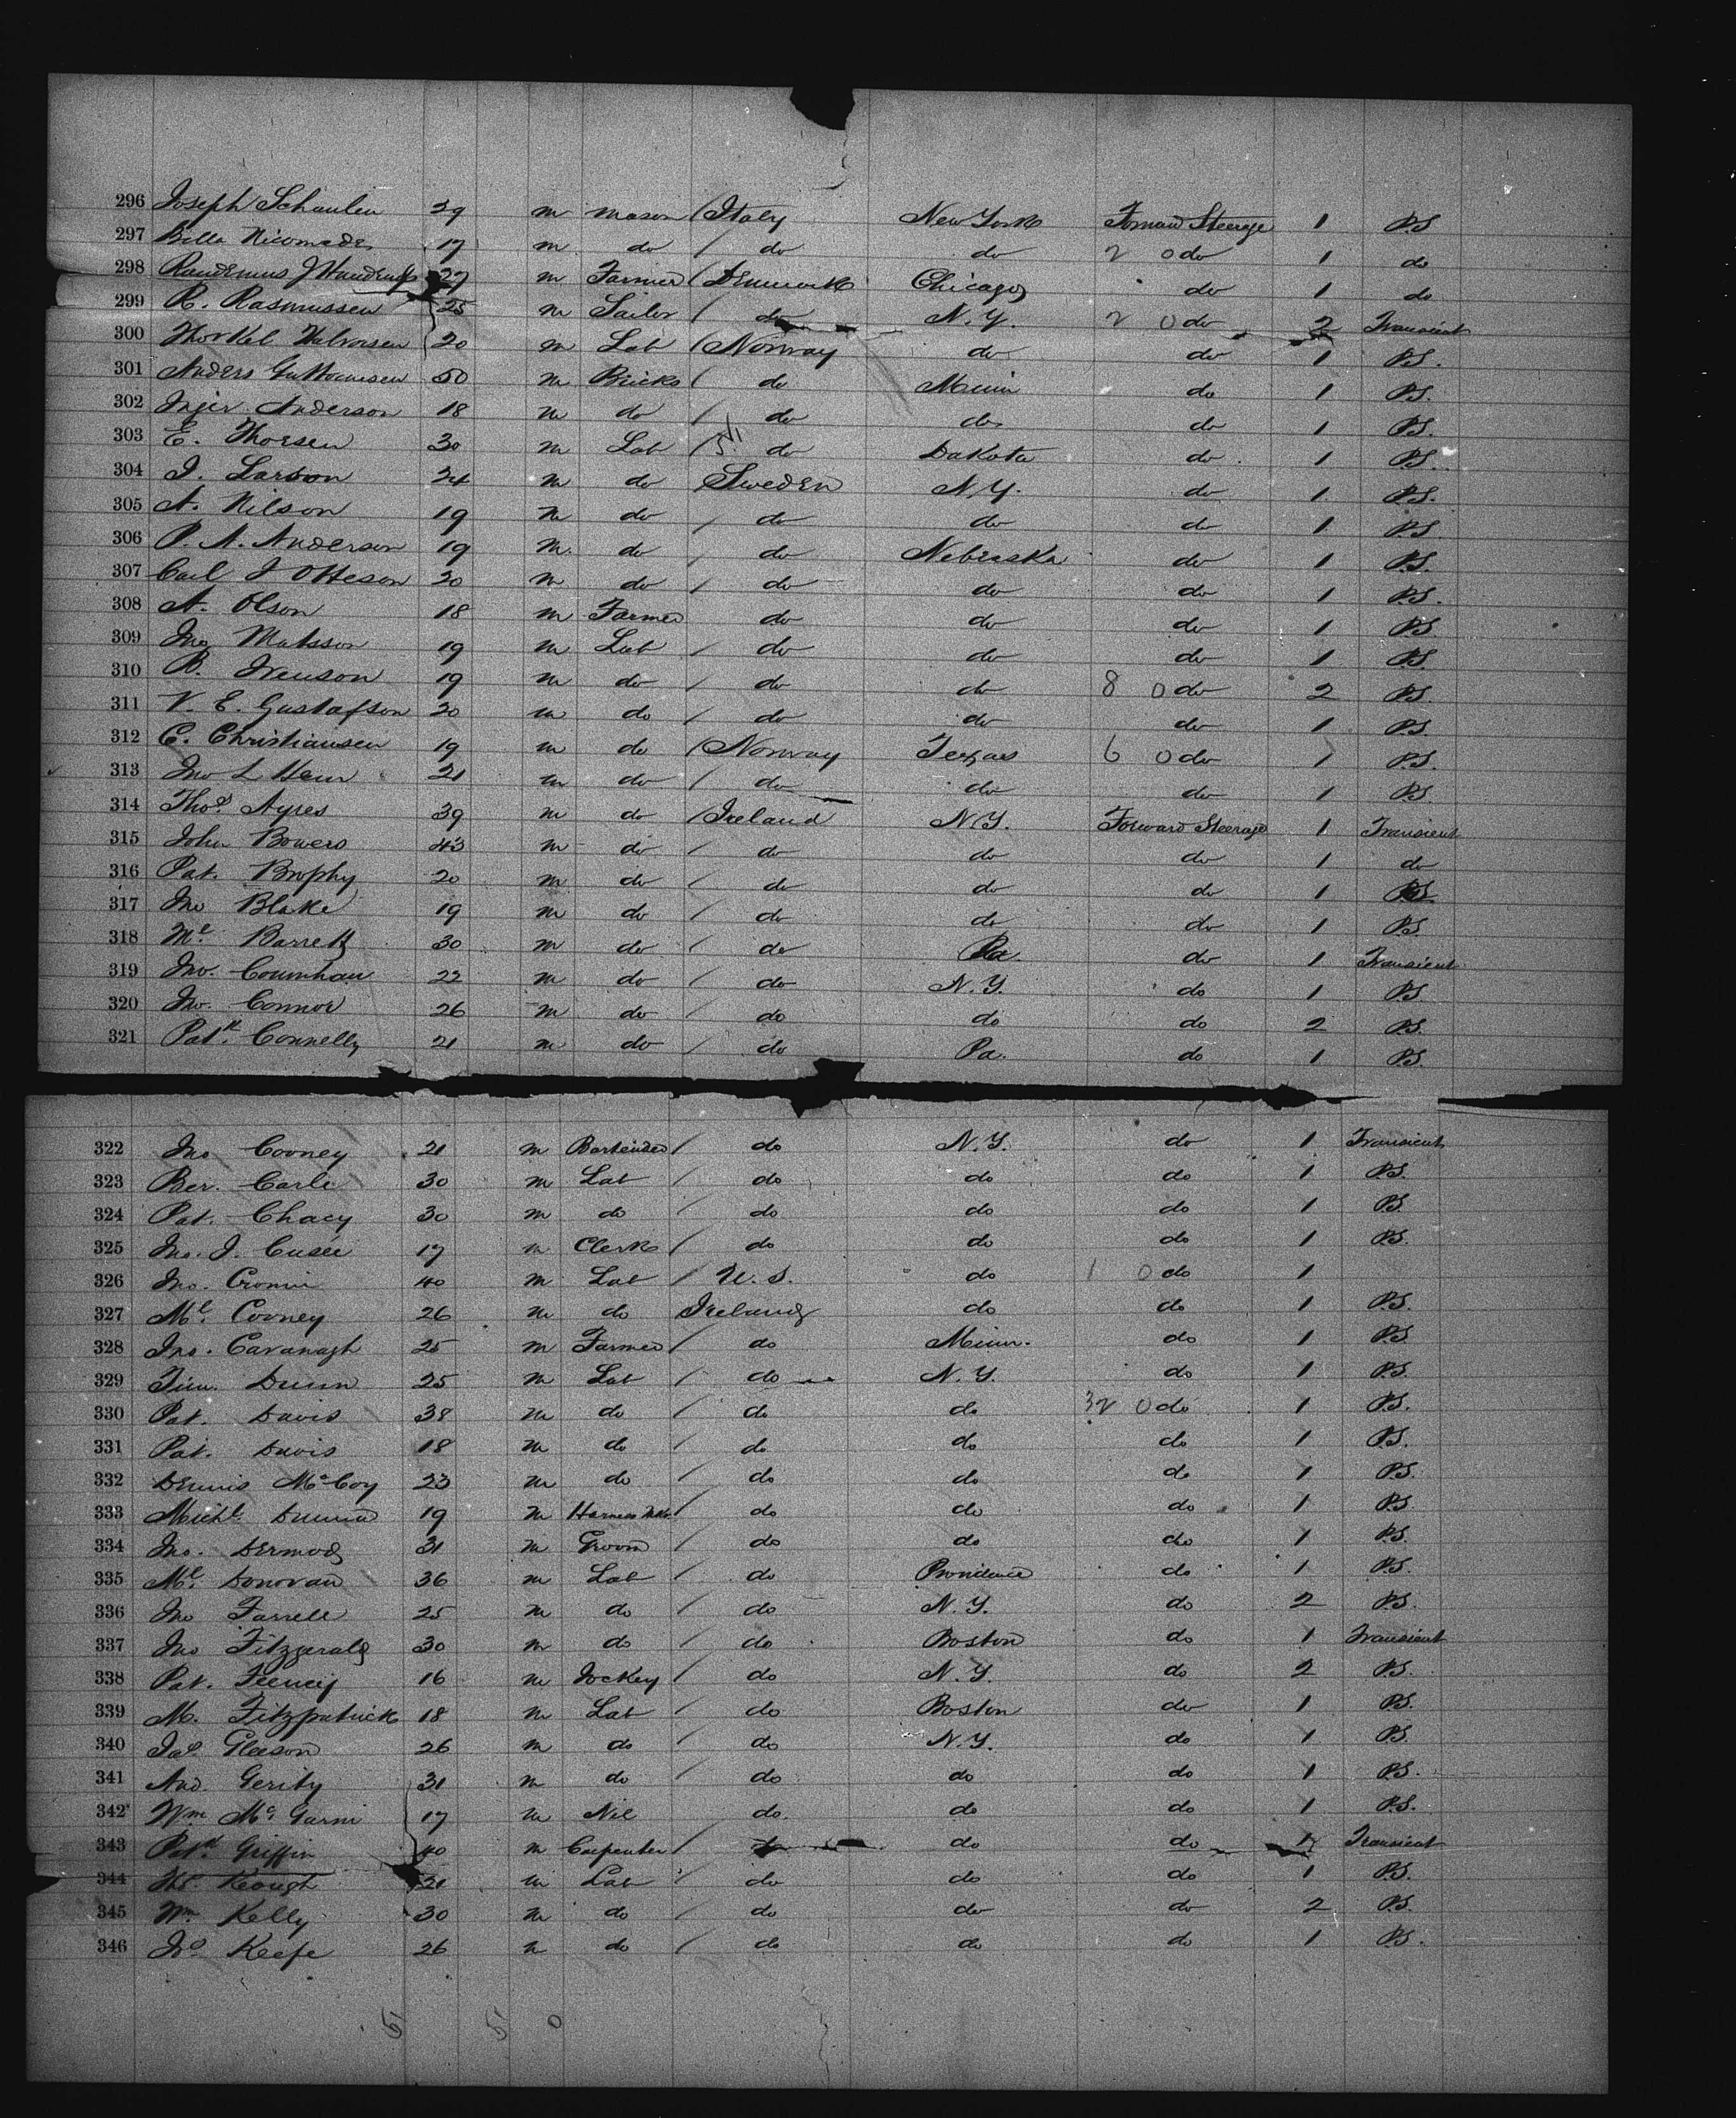 296 Joseph Schaulen 29 m mason / Italy New York Forward Steerage 1 P.S
297 Bella Nicomades 17 m do / do do 2 0 do 1 do
298 27 m Farmer / Denmark Chicago do 1 do
299 R. Rasmussen 25 m Sailor / do N.Y. 2 0 do 2 Transient
300 Thorkel Halvorsen 20 m Lab / Norway do do 1 P.S.
301 Anders 50 m Bricks / do Minn do 1 P.S.
302 Anderson 18 m do / do do do 1 P.S.
303 E. Thorsen 30 m Lab / do Dakota do 1 P.S.
304 J. Larson 24 m do / Sweden N.Y. do 1 P.S.
305 A. Nilson 19 m do / do do do 1 P.S
306 P. A. Anderson 19 m do / do Nebraska do 1 P.S.
307 Carl J Otteson 20 m do / do do do 1 P.S.
308 A. Olson 18 m Farmer do do do 1 P.S
309 Matsson 19 m Lab / do do do 1 P.S
310 B. 19 m do / do do 8 0 do 2 P.S.
311 V. E. Gustafson 20 m do / do do do 1 P.S
312 C. Christiansen 19 m do / Norway Texas 6 0 do 1 P.S.
313 Jno L 21 m do / do do do 1 P.S
314 Thos. Ayres 39 m do / Ireland N.Y. Forward Steerage 1 Transient
315 John Bowers 43 m do / do do do 1 do
316 Pat. Brophy 20 m do / do do do 1 P.S.
317 Jno Blake 19 m do / do do do 1 P.S.
318 Ml. Barrett 30 m do / do Pa. do 1 Transient
319 Jno. Counihan 22 m do / do N.Y. do 1 P.S
320 Jno. Connor 26 m do / do do do 2 P.S.
321 Patk. Connelly 21 m do / do Pa. do 1 P.S.
322 Jno Cooney 21 m Bartender / do N.Y. do 1 Transient
323 Ber. Carle 30 m Lab / do do do 1 P.S.
324 Pat. Chacy 30 m do / do do do 1 P.S
325 Jno. J. Cusee 17 m Clerk / do do do 1 P.S.
326 Jno. Cronin 40 m Lab / U.S. do 1 0 do 1
327 Ml. Cooney 26 m do Ireland do do 1 P.S.
328 Jno. Cavanagh 25 m Farmer / do Minn. do 1 P.S
329 Tim. Dunn 25 m Lab / do N.Y. do 1 P.S.
330 Pat. Davis 38 m do / do do 32 0 do 1 P.S.
331 Pat. Davis 18 m do / do do do 1 P.S.
332 Dennis McCoy 23 m do / do do do 1 P.S.
333 Michl. 19 m Harness Mkr. / do do do 1 P.S
334 Jno. Dermody 31 m Groom / do do do 1 P.S.
335 Ml. Donovan 36 m Lab / do Providence do 1 P.S.
336 Jno Farrell 25 m do / do N.Y. do 2 P.S.
337 Jno Fitzgerald 30 m do / do Boston do 1 Transient
338 Pat. Feeney 16 m Jockey / do N.Y. do 2 P.S.
339 M. Fitzpatrick 18 m Lab / do Boston do 1 P.S.
340 Jas Gleeson 26 m do / do N.Y. do 1 P.S.
341 And. Gerity 31 m do / do do do 1 P.S.
342 Wm Mc. 17 m Nil do. do do 1 P.S.
343 Patk. Griffin 40 m Carpenter / do do do 1 Transient
344 Keough 21 m Lab / do do do 1 P.S.
345 Wm. Kelly 30 m do / do do do 2 P.S.
346 Jno Keefe 26 m do / do do do 1 P.S.
5 5 0